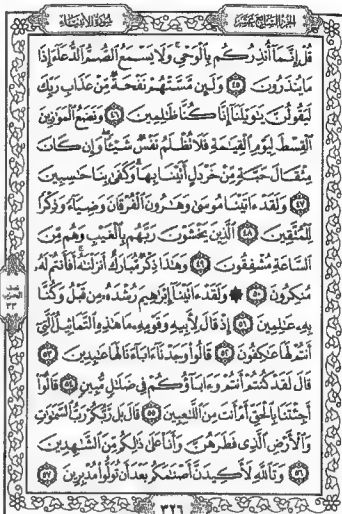 الجزء السابع عشر سورة الأنبياء
قُلْ إِنَّمَآ أُنذِرُكُم بِٱلْوَحْىِ ۚ وَلَا يَسْمَعُ ٱلصُّمُّ ٱلدُّعَآءَ إِذَا
مَا يُنذَرُونَ ٤٥ وَلَئِن مَّسَّتْهُمْ نَفْحَةٌ مِّنْ عَذَابِ رَبِّكَ
لَيَقُولُنَّ يَٰوَيْلَنَآ إِنَّا كُنَّا ظَٰلِمِينَ ٤٦ وَنَضَعُ ٱلْمَوَٰزِينَ
ٱلْقِسْطَ لِيَوْمِ ٱلْقِيَٰمَةِ فَلَا تُظْلَمُ نَفْسٌ شَيْـًٔا ۖ وَإِن كَانَ
مِثْقَالَ حَبَّةٍ مِّنْ خَرْدَلٍ أَتَيْنَا بِهَا ۗ وَكَفَىٰ بِنَا حَٰسِبِينَ
٤٧ وَلَقَدْ ءَاتَيْنَا مُوسَىٰ وَهَٰرُونَ ٱلْفُرْقَانَ وَضِيَآءً وَذِكْرًا
لِّلْمُتَّقِينَ ٤٨ ٱلَّذِينَ يَخْشَوْنَ رَبَّهُم بِٱلْغَيْبِ وَهُم مِّنَ
ٱلسَّاعَةِ مُشْفِقُونَ ٤٩ وَهَٰذَا ذِكْرٌ مُّبَارَكٌ أَنزَلْنَٰهُ ۚ أَفَأَنتُمْ لَهُۥ
مُنكِرُونَ ٥٠ ۞ وَلَقَدْ ءَاتَيْنَآ إِبْرَٰهِيمَ رُشْدَهُۥ مِن قَبْلُ وَكُنَّا
بِهِۦ عَٰلِمِينَ ٥١ إِذْ قَالَ لِأَبِيهِ وَقَوْمِهِۦ مَا هَٰذِهِ ٱلتَّمَاثِيلُ ٱلَّتِىٓ
أَنتُمْ لَهَا عَٰكِفُونَ ٥٢ قَالُوا۟ وَجَدْنَآ ءَابَآءَنَا لَهَا عَٰبِدِينَ ٥٣
قَالَ لَقَدْ كُنتُمْ أَنتُمْ وَءَابَآؤُكُمْ فِى ضَلَٰلٍ مُّبِينٍ ٥٤ قَالُوٓا۟
أَجِئْتَنَا بِٱلْحَقِّ أَمْ أَنتَ مِنَ ٱللَّٰعِبِينَ ٥٥ قَالَ بَل رَّبُّكُمْ رَبُّ ٱلسَّمَٰوَٰتِ
وَٱلْأَرْضِ ٱلَّذِى فَطَرَهُنَّ وَأَنَا۠ عَلَىٰ ذَٰلِكُم مِّنَ ٱلشَّٰهِدِينَ
٥٦ وَتَٱللَّهِ لَأَكِيدَنَّ أَصْنَٰمَكُم بَعْدَ أَن تُوَلُّوا۟ مُدْبِرِينَ ٥٧
نصف
الحزب
٣٣
٣٢٦